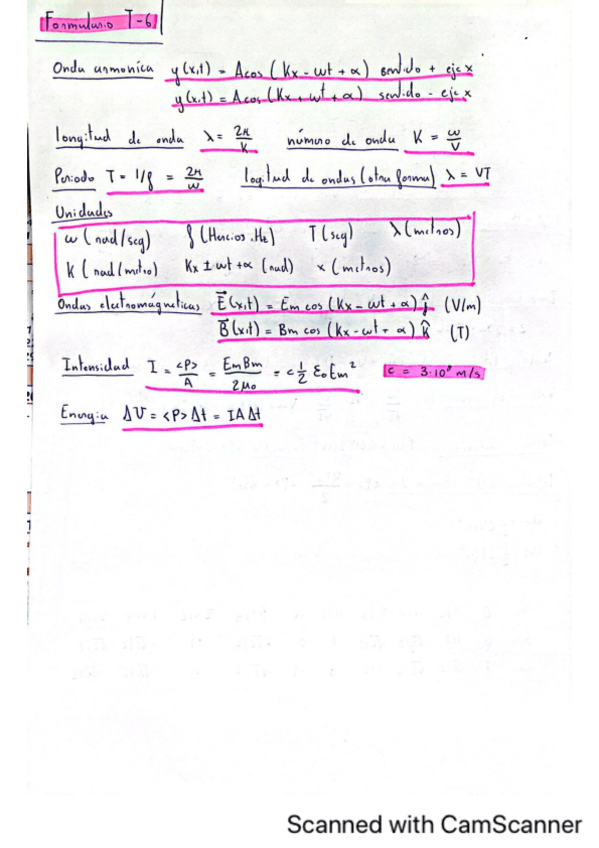 Formulario T-6
Onda armonica y(x,t) = Acos (Kx - wt + α) sentido + eje x
y(x,t) = Acos (Kx + wt + α) sentido - eje x
longitud de onda λ = 2π/K número de onda K = w/V
Periodo T = 1/f = 2π/w logitud de ondas (otra forma) λ = VT
Unidades
w (rad/seg) f (Hercios.Hz) T (seg) λ (metros)
K (rad/metro) Kx ± wt + α (rad) x (metros)
Ondas eletromágneticas E⃗(x,t) = Em cos (Kx - wt + α) ĵ (V/m)
B⃗(x,t) = Bm cos (Kx - wt + α) k̂ (T)
Intensidad I = <P>/A = EmBm/2μ₀ = c ½ ε₀ Em² c = 3·10⁸ m/s
Energia ΔU = <P> Δt = IAΔt
Scanned with CamScanner